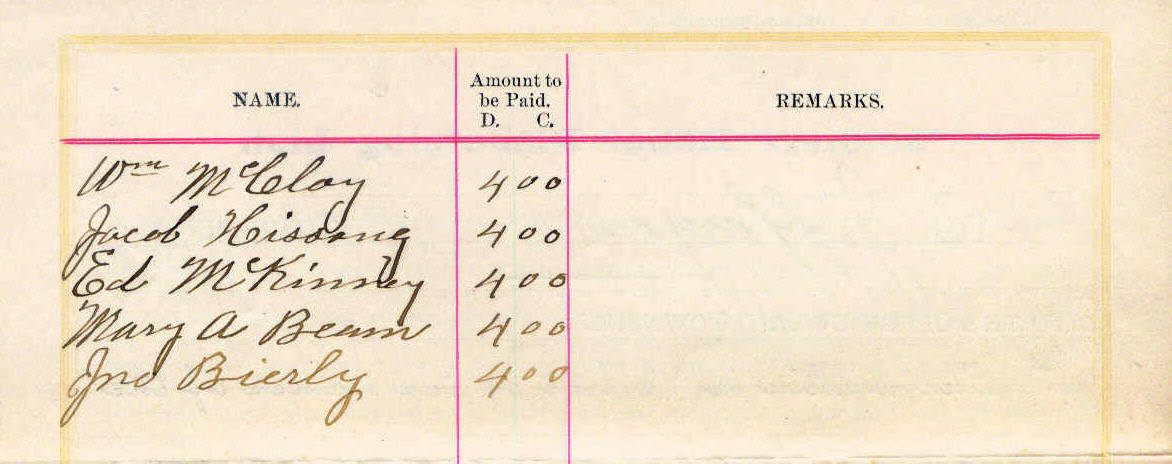 NAME. Amount to be Paid. D. C. REMARKS.
Wm McCloy 4 00
Jacob Hissong 4 00
Ed McKinney 4 00
Mary A Beam 4 00
Jno Bierly 4 00